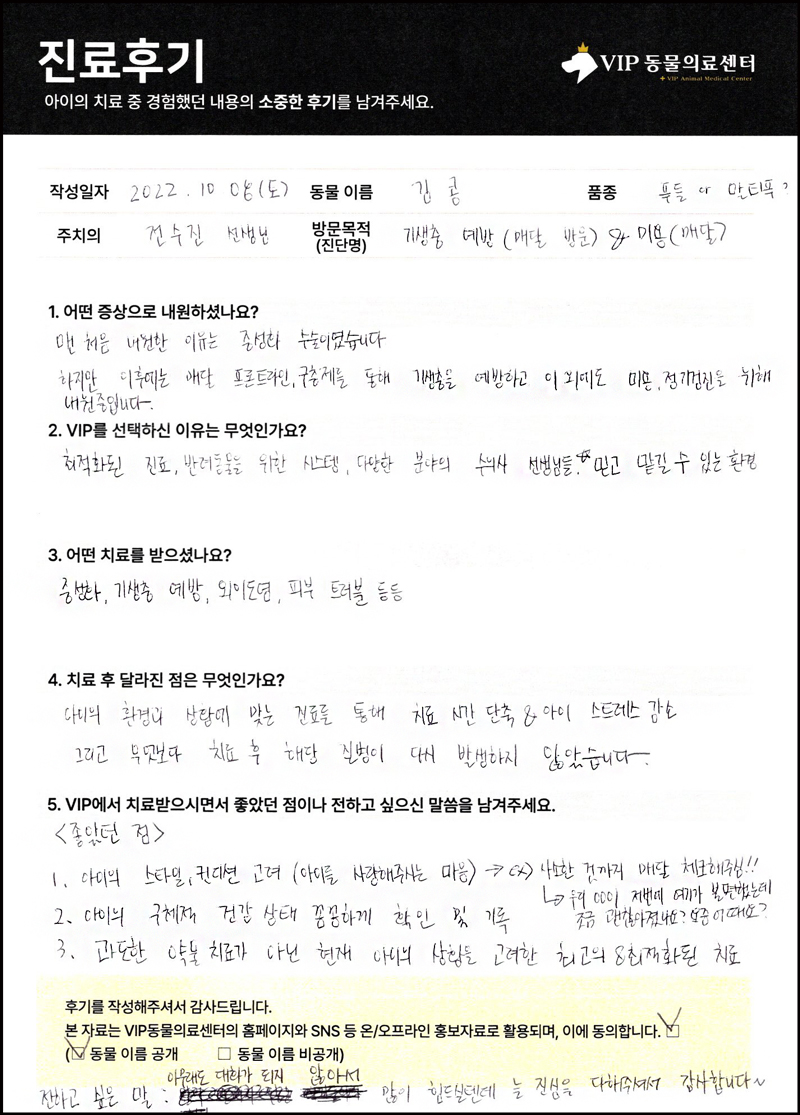 진료후기
아이의 치료 중 경험했던 내용의 소중한 후기를 남겨주세요.
VIP 동물의료센터
VIP Animal Medical Center
작성일자 2022. 10 08(토) 동물 이름 김콩 품종 푸들 or 말티푸?
주치의 전수진 선생님 방문목적 (진단명) 기생충 예방(매달 방문) & 미용(매달)
1. 어떤 증상으로 내원하셨나요?
맨 처음 내원한 이유는 중성화 수술이었습니다
하지만 이후에는 매달 프론트라인, 구충제를 통해 기생충을 예방하고 이 외에도 미용, 정기검진을 위해
내원중입니다.
2. VIP를 선택하신 이유는 무엇인가요?
최적화된 진료, 반려동물을 위한 시스템, 다양한 분야의 수의사 선생님들. ☆ 믿고 맡길 수 있는 환경
3. 어떤 치료를 받으셨나요?
중성화, 기생충 예방, 외이도염, 피부 트러블 등등
4. 치료 후 달라진 점은 무엇인가요?
아이의 환경과 상황에 맞는 진료를 통해 치료 시간 단축 & 아이 스트레스 감소
그리고 무엇보다 치료 후 해당 질병이 다시 발생하지 않았습니다.
5. VIP에서 치료받으시면서 좋았던 점이나 전하고 싶으신 말씀을 남겨주세요.
<좋았던 점>
1. 아이의 스타일, 컨디션 고려 (아이를 사랑해주시는 마음) → ex) 사소한 것까지 매달 체크해주심!!
↳ 우리 OO이 저번에 여기가 불편했는데
2. 아이의 구체적 건강 상태 꼼꼼하게 확인 및 기록
조금 괜찮아졌나요? 요즘 어때요?
3. 과도한 약물 치료가 아닌 현재 아이의 상황을 고려한 최고의 & 최적화된 치료
후기를 작성해주셔서 감사드립니다.
본 자료는 VIP동물의료센터의 홈페이지와 SNS 등 온/오프라인 홍보자료로 활용되며, 이에 동의합니다. ☑
(☑ 동물 이름 공개 ☐ 동물 이름 비공개)
아무래도 대화가 되지 않아서
전하고 싶은 말 : 많이 힘드실텐데 늘 진심을 다해주셔서 감사합니다~